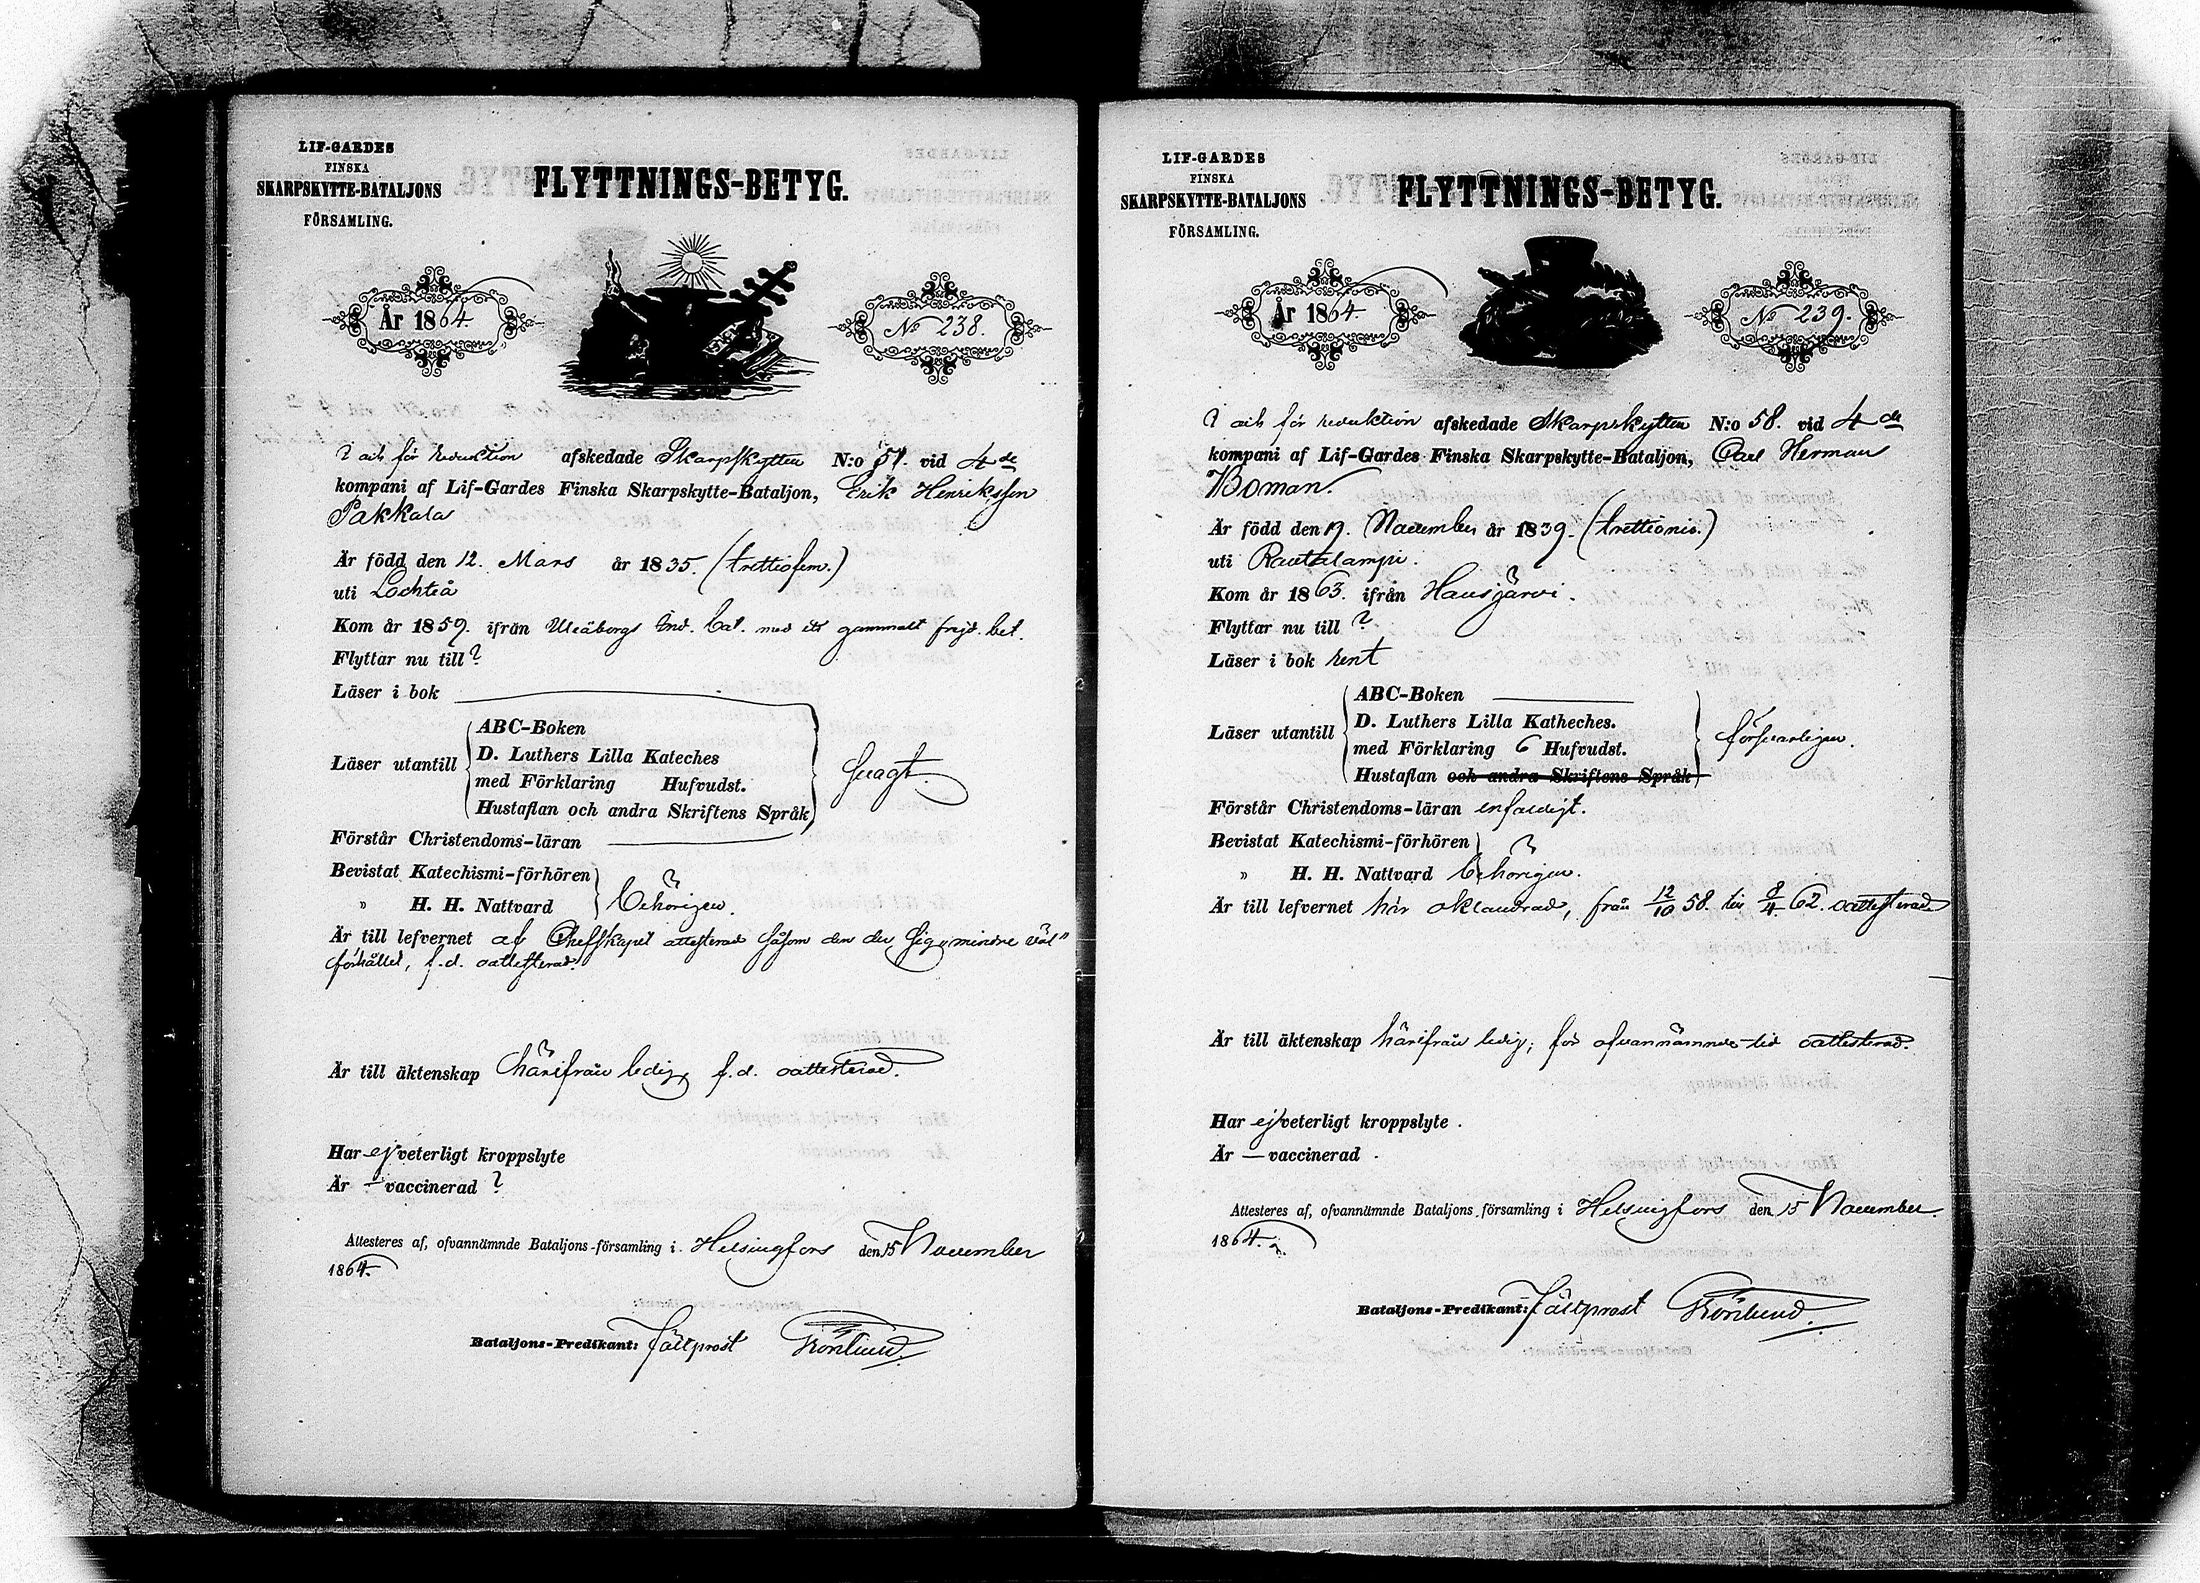 LIF-GARDES
FINSKA
SKARPSKYTTE-BATALJONS
FÖRSAMLING.
FLYTTNINGS-BETYG.
År 1864.
No 238.
afskedade Skarpskytten N:o 51. vid 4de
kompani af Lif-Gardes Finska Skarpskytte-Bataljon, Erik Henriksson
Pakkala
Är född den 12. Mars år 1835. (trettiofem.)
uti Lochteå
Kom år 1859. ifrån Uleåborgs Ind. Bat. med ett gammalt frejd. bet.
Flyttar nu till?
Läser i bok
Läser utantill
ABC-Boken
D. Luthers Lilla Kateches
med Förklaring Hufvudst.
Hustaflan och andra Skriftens Språk
svagt.
Förstår Christendoms-läran
Bevistat Katechismi-förhören
" H. H. Nattvard
behörigen.
Är till lefvernet af Chefskapet attesterad såsom den der sig "mindre väl"
förhållet, f. d. oattesterad.
Är till äktenskap härifrån ledig, f. d. oattesterad.
Har ej veterligt kroppslyte
Är — vaccinerad ?
Attesteres af, ofvannämnde Bataljons-församling i Helsingfors den 15 November
1864.
Bataljons-Predikant: Fältprost
LIF-GARDES
FINSKA
SKARPSKYTTE-BATALJONS
FÖRSAMLING.
FLYTTNINGS-BETYG.
År 1864.
No 239.
för reduktion afskedade Skarpskytten N:o 58. vid 4de
kompani af Lif-Gardes Finska Skarpskytte-Bataljon, Carl Herman
Boman.
Är född den 19. November år 1839. (trettionio.)
uti Rautalampi.
Kom år 1863. ifrån Hausjärvi.
Flyttar nu till ?
Läser i bok rent
Läser utantill
ABC-Boken
D. Luthers Lilla Katheches.
med Förklaring 6 Hufvudst.
Hustaflan och andra Skriftens Språk
försvarligen.
Förstår Christendoms-läran enfaldigt.
Bevistat Katechismi-förhören
" H. H. Nattvard behörigen.
Är till lefvernet här oklandrad, från 12/10 58. till 8/4 62. oattesterad
Är till äktenskap härifrån ledig; för ofvannämnde tid oattesterad.
Har ej veterligt kroppslyte.
Är — vaccinerad.
Attesteres af, ofvannämnde Bataljons församling i Helsingfors den 15 November
1864.
Bataljons-Predikant: Fältprost